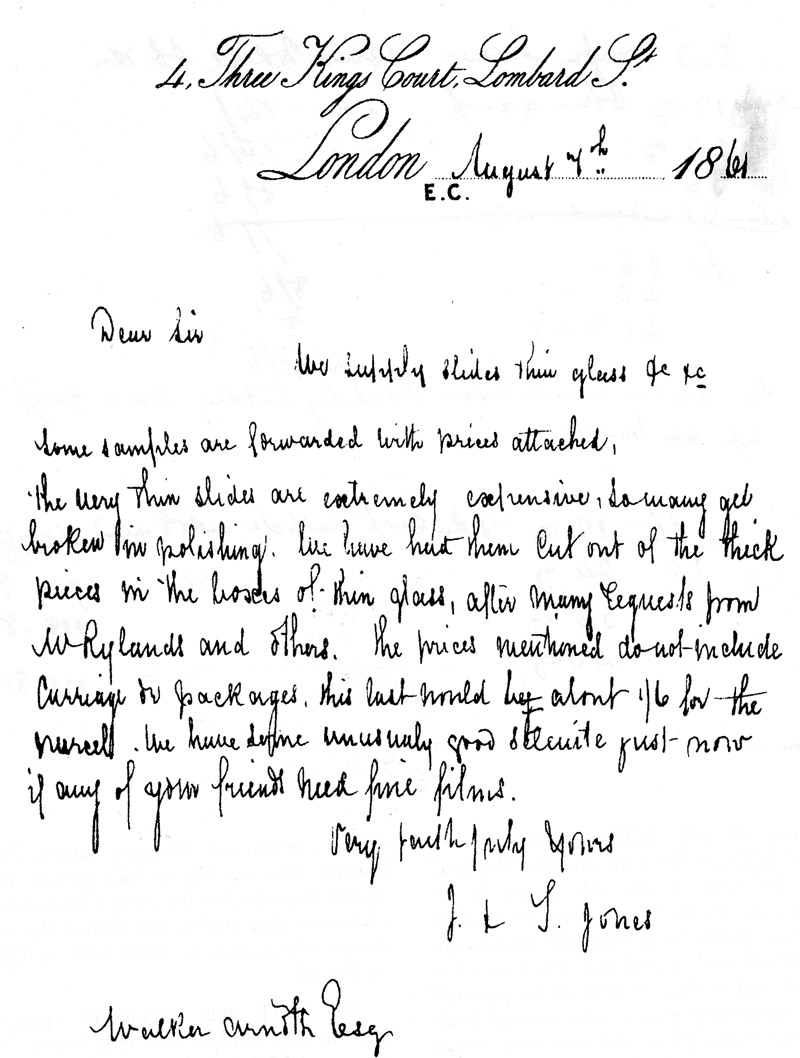 4, Three Kings Court, Lombard St.
London August 7th 1861
E.C.
Dear Sir
We supply slides thin glass &c &c
some samples are forwarded with prices attached,
the very thin slides are extremely expensive, so many get
broken in polishing. We have had them cut out of the thick
pieces in the boxes of thin glass, after many requests from
Mr Rylands and others. The prices mentioned do not include
Carriage or packages, this last would be about 1/6 for the
parcel. We have some unusualy good selenite just now
if any of your friends need fine films.
Very faithfully Yours
J. & T. Jones
Walker Esq